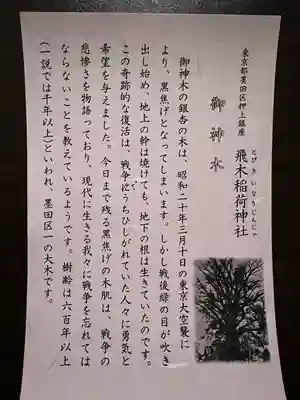 東京都墨田区押上鎮座
飛木稲荷神社
とびきいなりじんじゃ
御神木
御神木の銀杏の木は、昭和二十年三月十日の東京大空襲に
より、黒焦げとなってしまいます。しかし戦後緑の目が吹き
出し始め、地上の幹は焼けても、地下の根は生きていたのです。
この奇跡的な復活は、戦争にうちひしがれていた人々に勇気と
希望を与えました。今日まで残る黒焦げの木肌は、戦争の
悲惨さを物語っており、現代に生きる我々に戦争を忘れては
ならないことを教えているようです。樹齢は六百年以上
(一説では千年以上)といわれ、墨田区一の大木です。